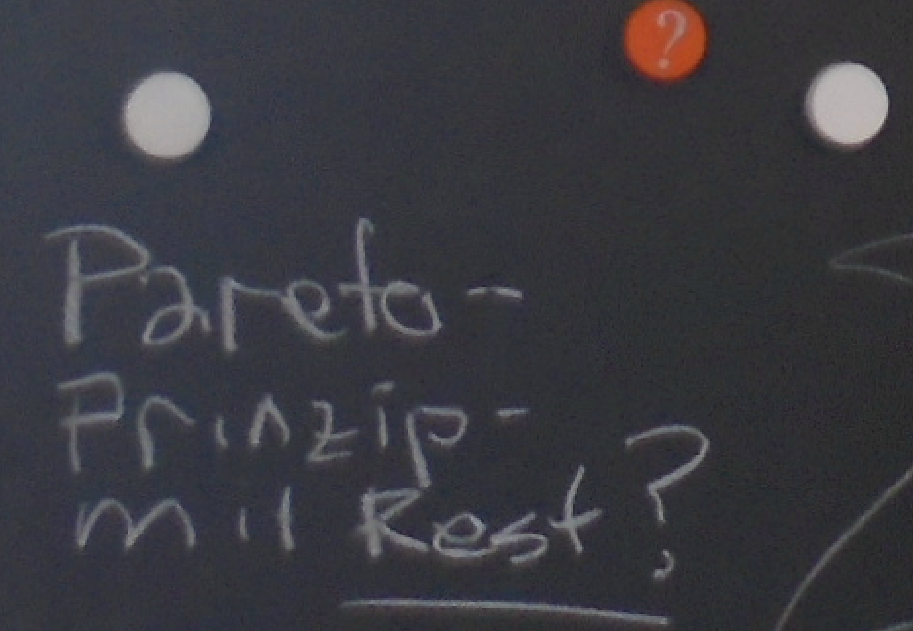 ?
Pareto-
Prinzip-
mit Rest?